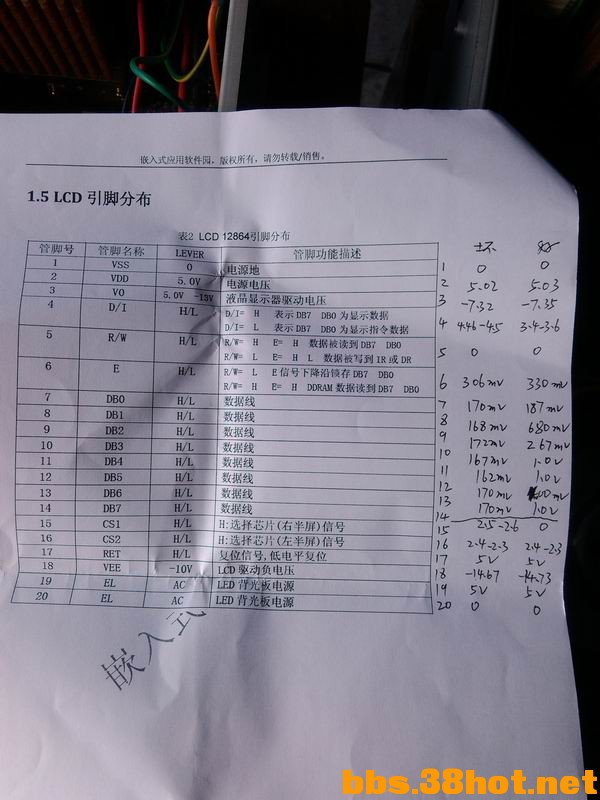 嵌入式应用软件园，版权所有，请勿转载/销售。
1.5 LCD 引脚分布
表2 LCD 12864引脚分布
管脚号 管脚名称 LEVER 管脚功能描述 坏 好
1 VSS 0 电源地 1 0 0
2 VDD 5.0V 电源电压 2 5.02 5.03
3 V0 5.0V -13V 液晶显示器驱动电压 3 -7.32 -7.35
4 D/I H/L D/I= H 表示 DB7 DB0 为显示数据 4 4.46-4.5 3.4-3.6
D/I= L 表示 DB7 DB0 为显示指令数据
5 R/W H/L R/W= H E= H 数据被读到 DB7 DB0 5 0 0
R/W= L E= H L 数据被写到 IR 或 DR
6 E H/L R/W= L E 信号下降沿锁存 DB7 DB0 6 306mv 330mv
R/W= H E= H DDRAM 数据读到 DB7 DB0
7 DB0 H/L 数据线 7 170mv 187mv
8 DB1 H/L 数据线 8 168mv 680mv
9 DB2 H/L 数据线 9 172mv 267mv
10 DB3 H/L 数据线 10 167mv 1.0v
11 DB4 H/L 数据线 11 162mv 1.0v
12 DB5 H/L 数据线 12 170mv 00mv
13 DB6 H/L 数据线 13 170mv 1.0v
14 DB7 H/L 数据线 14
15 CS1 H/L H:选择芯片(右半屏)信号 15 2.5-2.6 0
16 CS2 H/L H:选择芯片(左半屏)信号 16 2.4-2.3 2.4-2.3
17 RET H/L 复位信号,低电平复位 17 5V 5V
18 VEE -10V LCD 驱动负电压 18 -14.67 -14.73
19 EL AC LED 背光板电源 19 5V 5V
20 EL AC LED 背光板电源 20 0 0
嵌入式
bbs.38hot.net